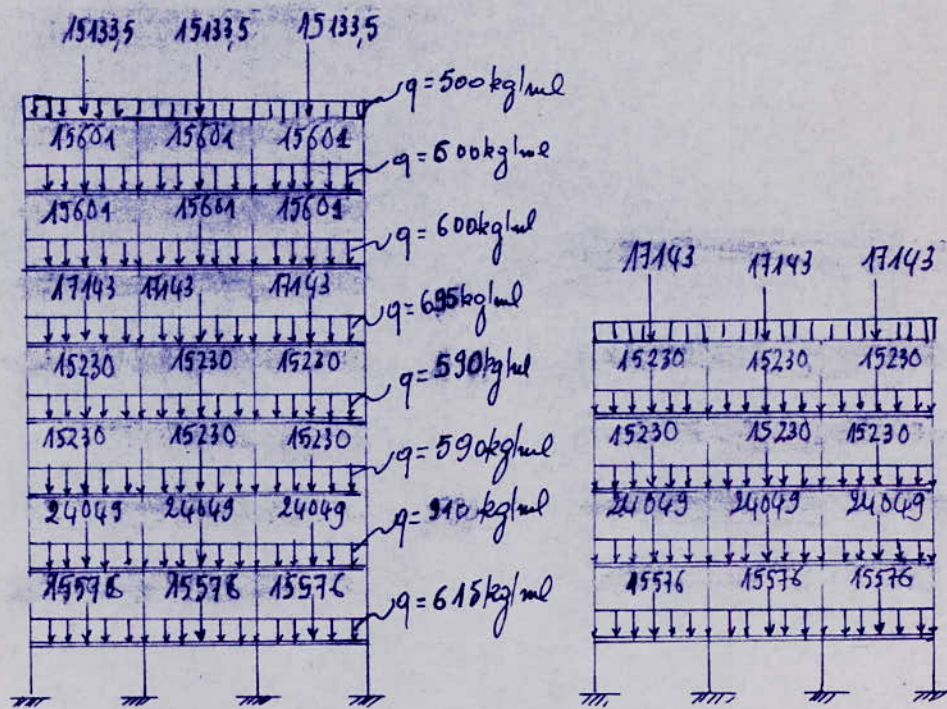 15133,5 15133,5 15133,5
q=500kg/ml
15601 15601 15601
q=600kg/ml
15601 15601 15601
q=600kg/ml
17143 17143 17143
q=695kg/ml
15230 15230 15230
q=590kg/ml
15230 15230 15230
q=590kg/ml
24049 24049 24049
q=910kg/ml
15576 15576 15576
q=615kg/ml
17143 17143 17143
15230 15230 15230
15230 15230 15230
24049 24049 24049
15576 15576 15576